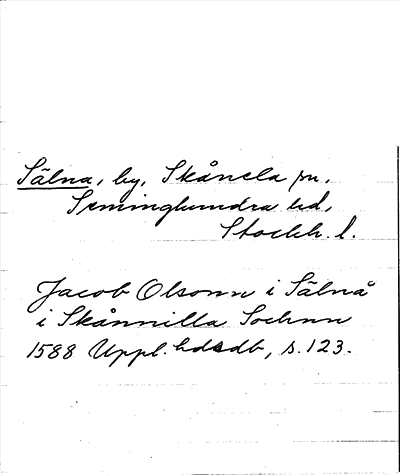 Sälna, by, Skånela sn,
Seminghundra hd,
Stockh. l.
Jacob Olsonn i Sälnå
i Skånnilla Sochnn
1588 Uppl. hdsdb, s. 123.